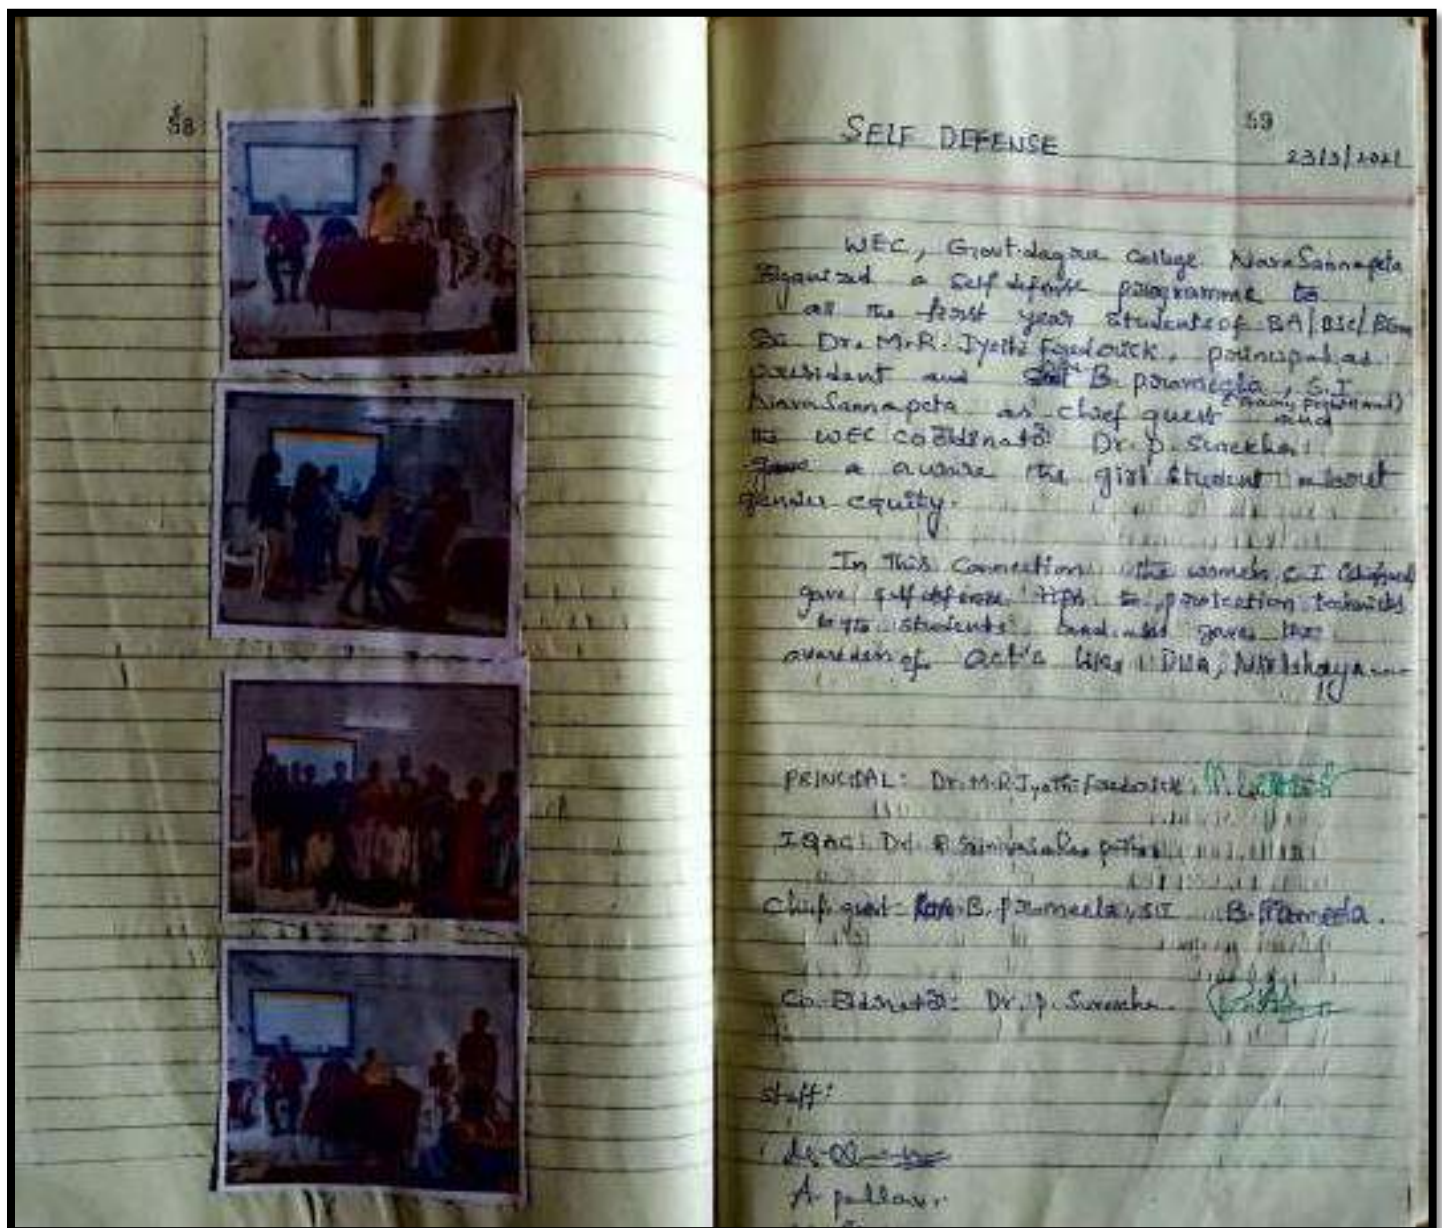 58
59
SELF DEFENSE
23/3/2021
WEC, Govt. degree College NaraSannapeta
Organized a Self defense programme to
all the first year students of BA/BSC/BCom
Dr. M.R. Jyothi Frederick, principal as
president and B. prameela, S.I
NaraSannapeta as chief guest and
the WEC coordinator Dr. P. Surekha
a aware the girl student about
gender equity.
In this Connection the women S.I
gave self defense tips to protection
students, and also gave the
act's like DISHA, Nirbhaya
PRINCIPAL: Dr. M.R Jyothi Frederick
IQAC: Dr.
Chief guest - B. Prameela, SI B. Prameela.
Co-ordinator: Dr. P. Surekha
Staff:
A. pallavi